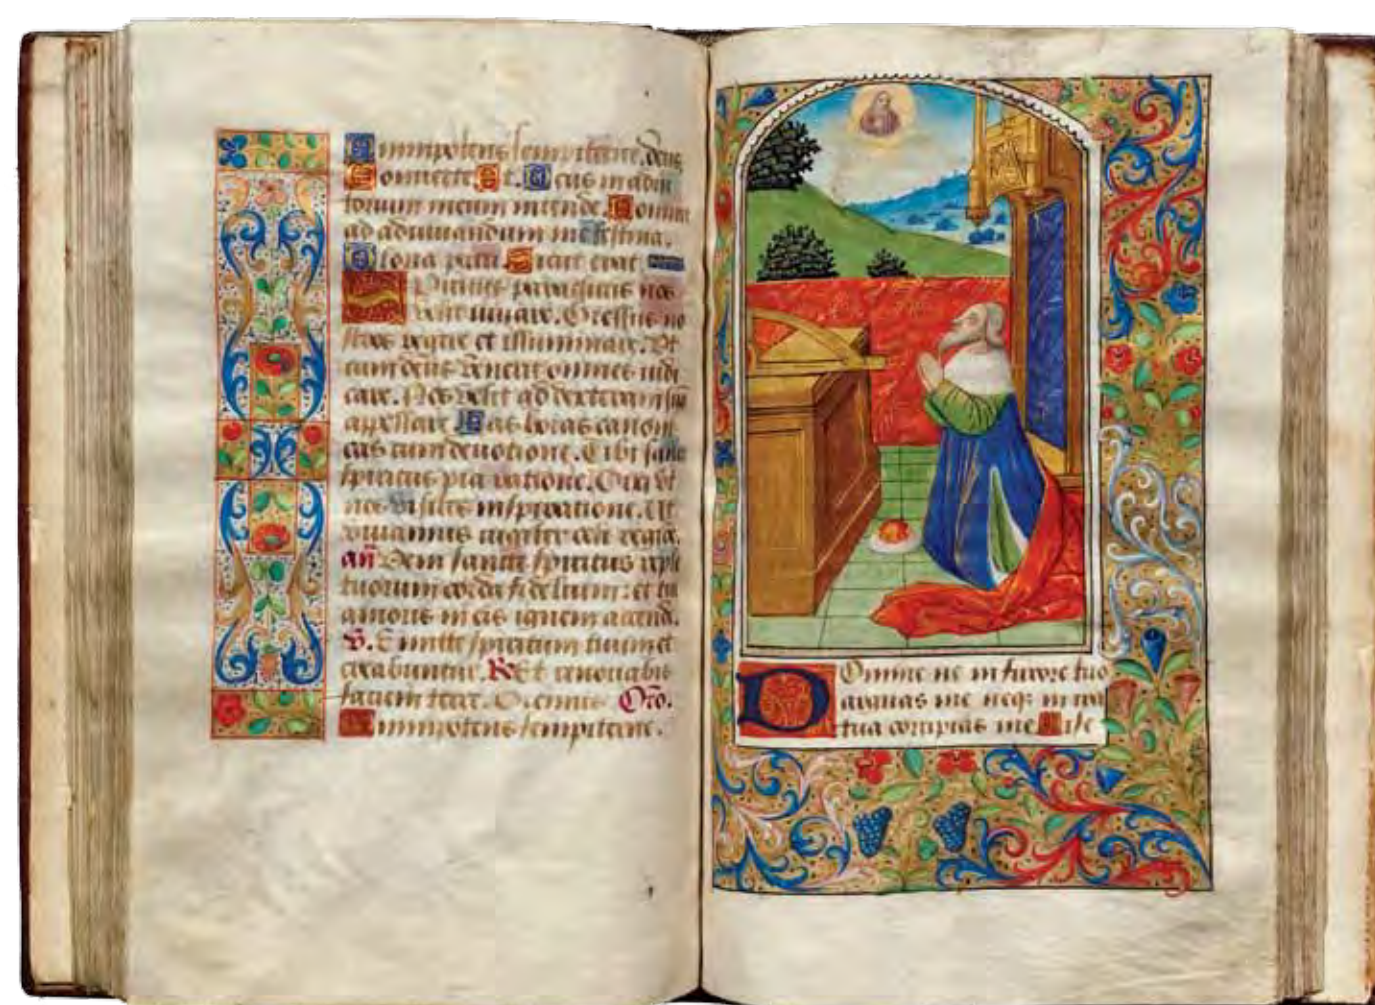 Omnipotens sempiterne. Deus
Conuerte. Et. Deus in adiu
torium meum intende. Domine
ad adiuuandum me festina.
Gloria patri. Sicut erat
Spiritus paraclitus nos
velit iuuare. Gressus no
stros regere et illuminare. Ut
cum deus venerit omnes iudi
care. Nos velit ad dexteram suā
appellare. Has horas canoni
cas cum deuotione. Tibi sancte
spiritus pia ratione. Dixi vt
nos visites inspiratione. Et
viuamus iugiter celi regiōe.
an̄ Veni sancte spiritus reple
tuorum corda fidelium: et tui
amoris in eis ignem accende.
V. Emitte spiritum tuum et
creabuntur. R. Et renouabis
faciem terre. Oremus Oro.
Omnipotens sempiterne.
Domine ne in furore tuo
arguas me neqz in ira
tua corripias me Mise